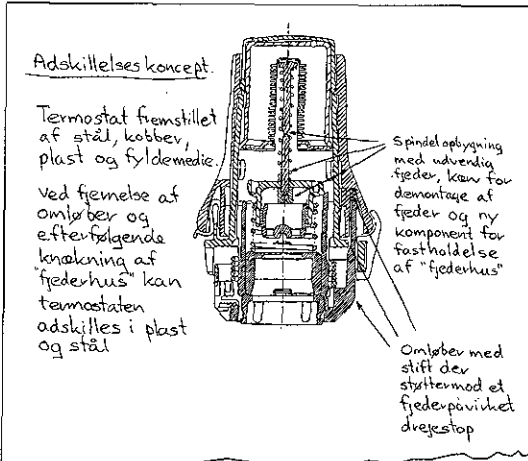 Adskillelseskoncept.
Termostat fremstillet
af stål, kobber,
plast og fyldemedie.
Ved fjernelse af
omløber og
efterfølgende
knækning af
"fjederhus" kan
termostaten
adskilles i plast
og stål
Spindelopbygning
med udvendig
fjeder, kærv for
demontage af
fjeder og ny
komponent for
fastholdelse
af "fjederhus"
Omløber med
stift der
støtter mod et
fjederpåvirket
drejestop